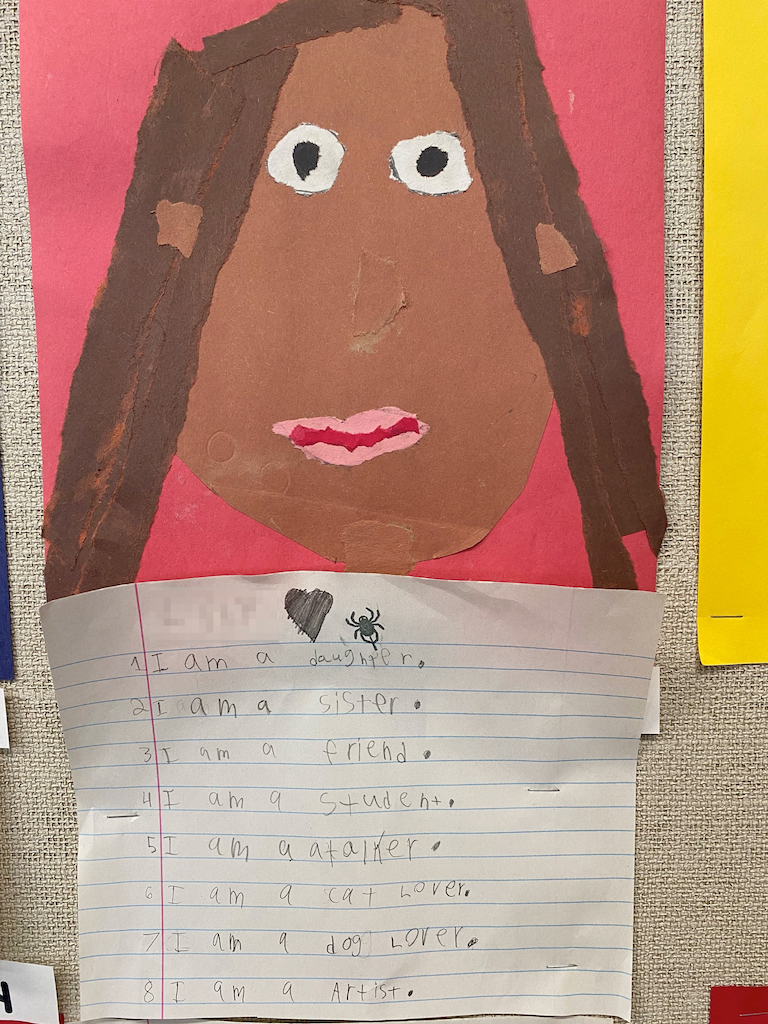 1 I am a daughter.
2 I am a sister.
3 I am a friend.
4 I am a student.
5 I am a atalker.
6 I am a cat Lover.
7 I am a dog Lover.
8 I am a Artist.